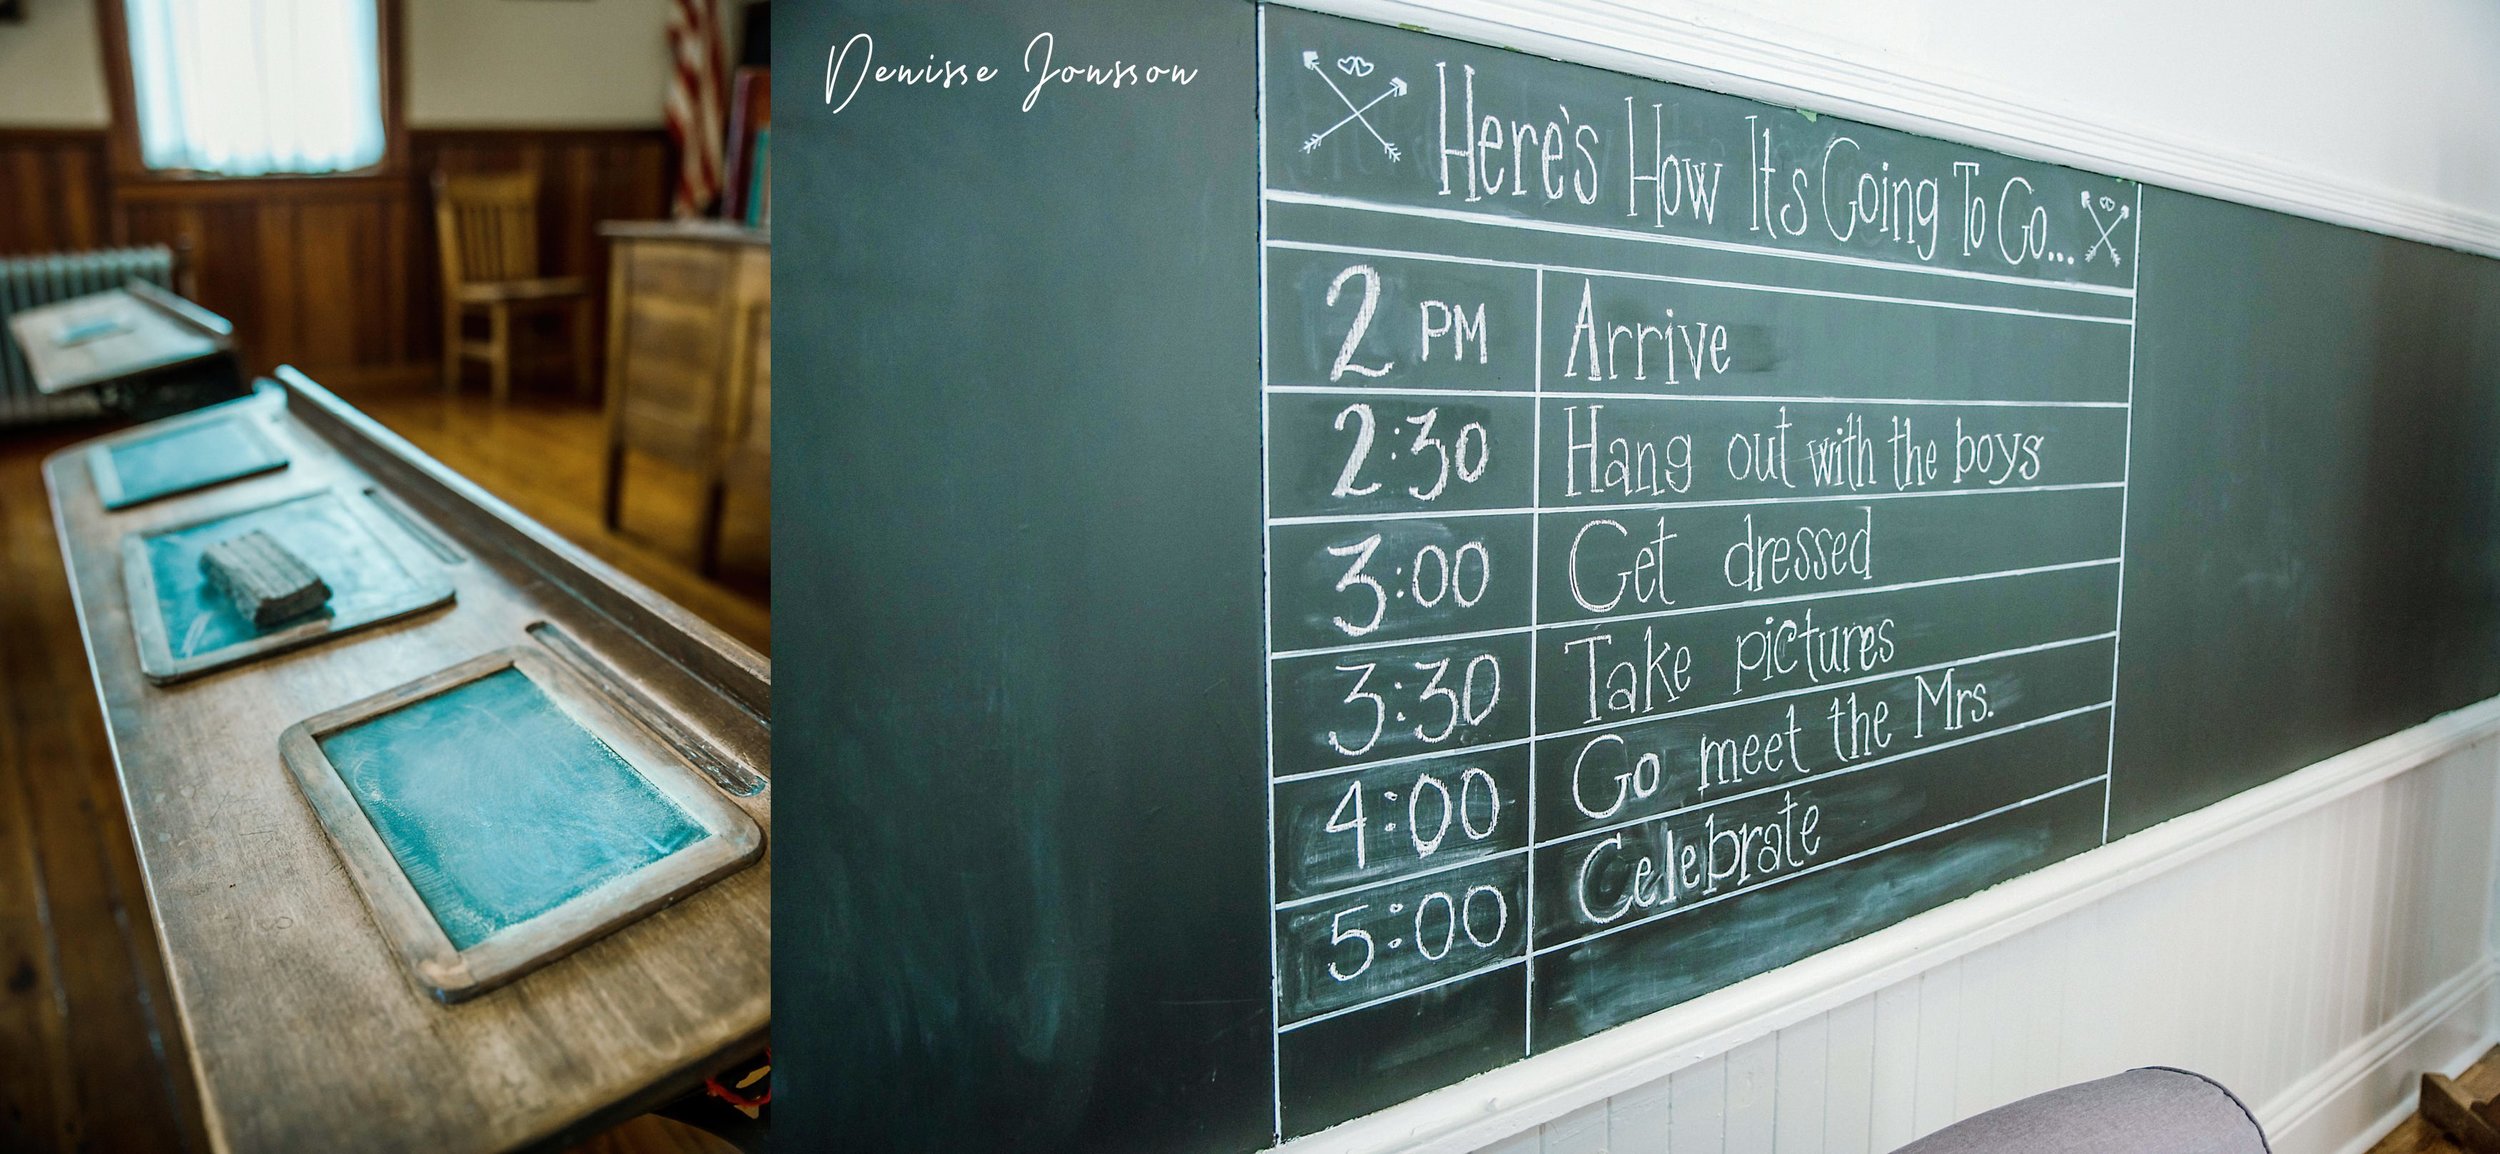 Denisse Jonsson
Here's How It's Going To Go...
2 PM Arrive
2:30 Hang out with the boys
3:00 Get dressed
3:30 Take pictures
4:00 Go meet the Mrs.
5:00 Celebrate